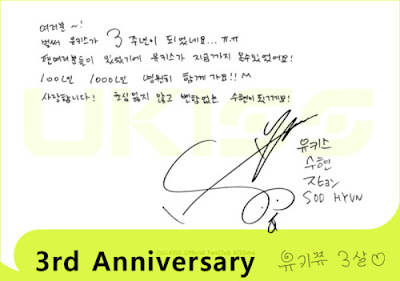 여러분~!
벌써 유키스가 3 주년이 되었네요... ㅠ.ㅠ
팬여러분들이 있었기에 유키스가 지금까지 올수있었어요!
100년 1000년 영원히 함께 가요!! ^^
사랑합니다! 중심 잃지 않고 변함없는 수현이 되게요!
유키스
수현
SOO HYUN
3rd Anniversary
유키쮸 3살♡